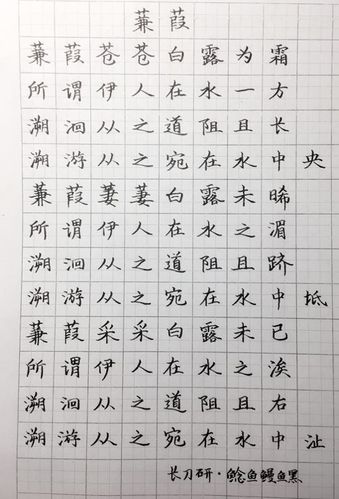 蒹葭
蒹葭苍苍白露为霜
所谓伊人在水一方
溯洄从之道阻且长
溯游从之宛在水中央
蒹葭萋萋白露未晞
所谓伊人在水之湄
溯洄从之道阻且跻
溯游从之宛在水中坻
蒹葭采采白露未已
所谓伊人在水之涘
溯洄从之道阻且右
溯游从之宛在水中沚
长刀研·鲶鱼鳗鱼黑